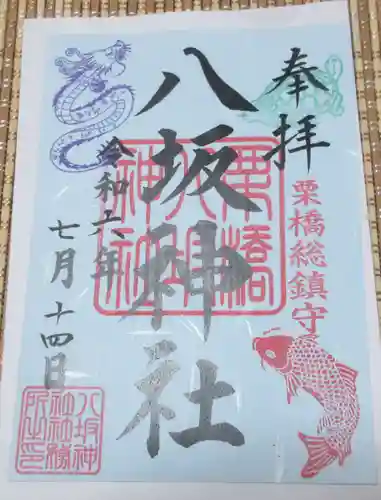 奉拝
栗橋総鎮守
八坂神社
栗橋
八坂
神社
令和六年
七月十四日
八坂神
社社務
所之印